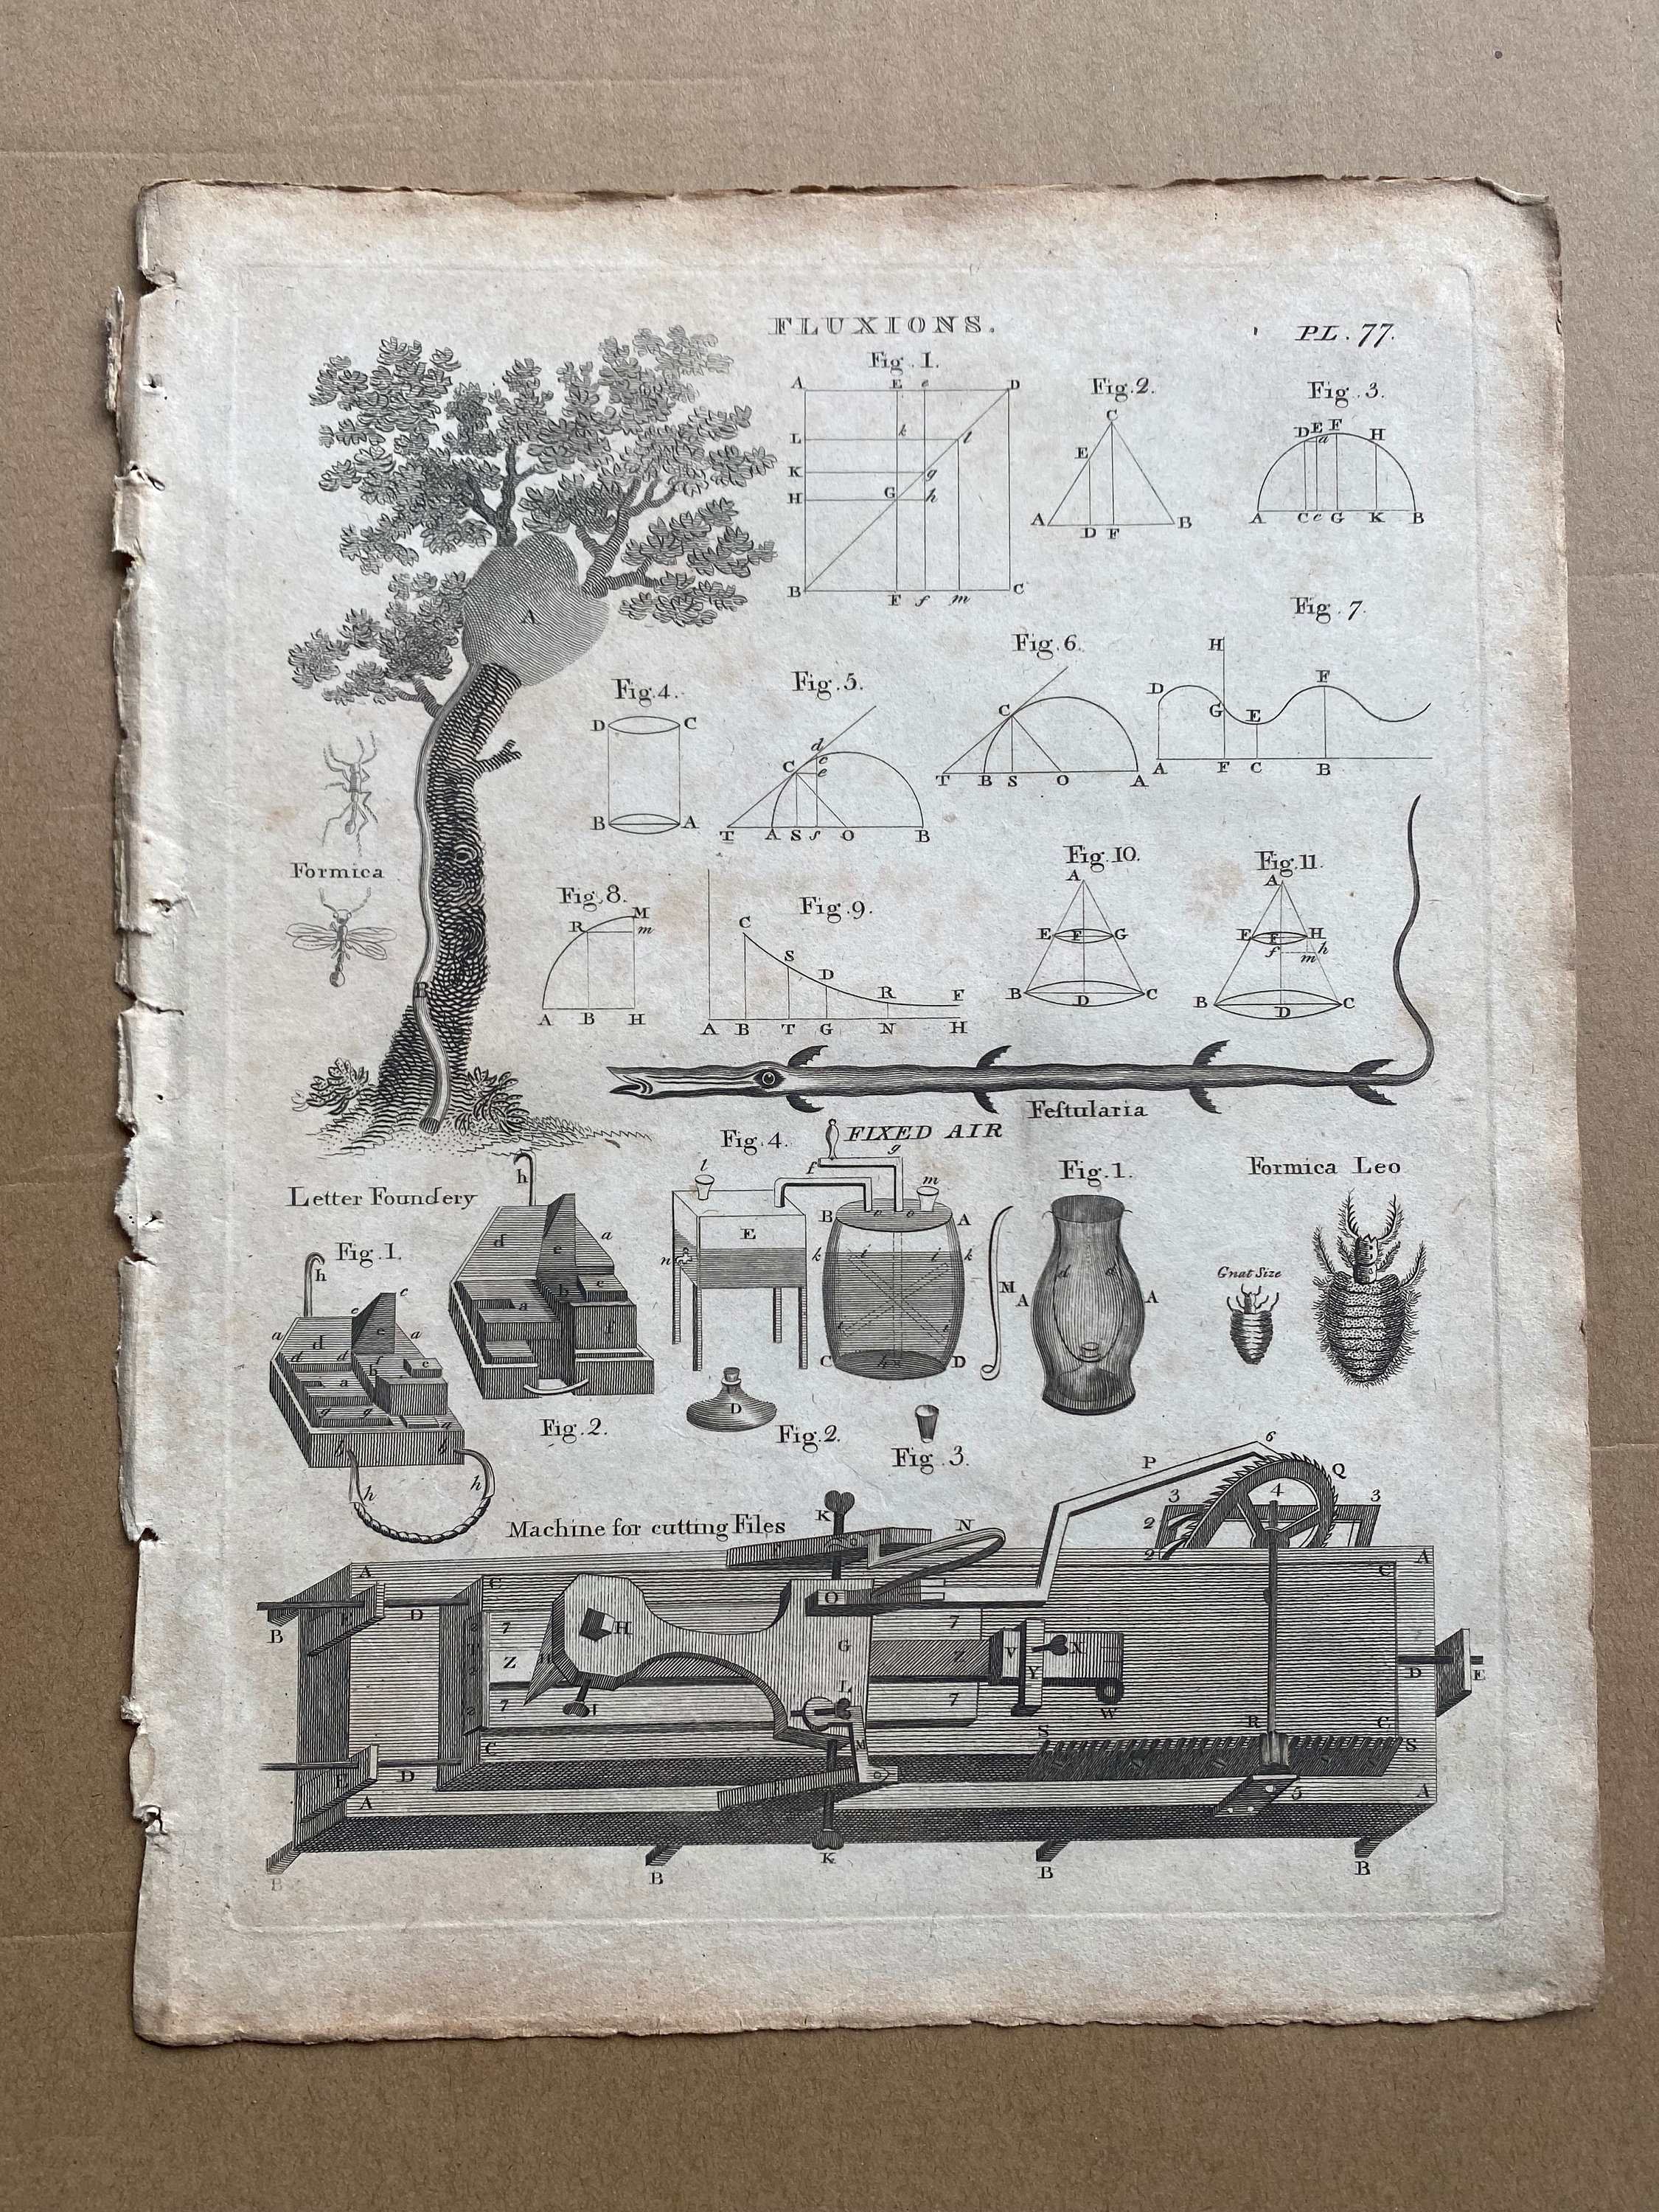 FLUXIONS.
PL. 77.
Fig. 1.
A E e D
L k l
K g
H G h
B F f m C
Fig. 2.
C
E
A D F B
Fig. 3.
D E F H
a
A C c G K B
A
B
Formica
Fig. 4.
D C
B A
Fig. 5.
d
C c
e
T A S f O B
Fig. 6.
C
T B S O A
Fig. 7.
H
D G E F
A F C B
Fig. 8.
R M
m
A B H
Fig. 9.
C
S
D
R F
A B T G N H
Fig. 10.
A
E F G
B D C
Fig. 11.
A
E F H
f m h
B D C
Feſtularia
Letter Foundery
Fig. 1.
h
a d e c a
d d f c
a b
g g a
b b
h h
Fig. 2.
h
d e a
a b c
f
FIXED AIR
Fig. 4.
l f g m
E B A
n k i i k
C D
M
D
Fig. 2.
Fig. 3.
Fig. 1.
d d
A A
Formica Leo
Gnat Size
Machine for cutting Files
K N P 6 Q
3 4 3
2
2
A C O C A
B E D 7 H G 7
Z Z V Y X D E
7 I L 7 W
C S R C S
E D M
A 5 A
K
B B B B